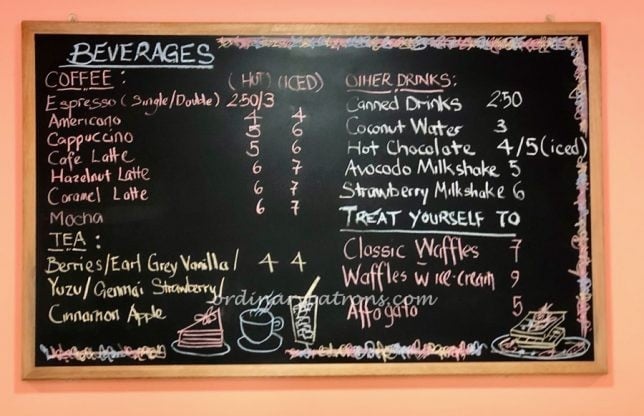 BEVERAGES
COFFEE : (HOT) (ICED)
Espresso (Single/Double) 2.50/3
Americano 4 4
Cappuccino 5 6
Cafe Latte 5 6
Hazelnut Latte 6 7
Caramel Latte 6 7
Mocha 6 7
TEA :
Berries/Earl Grey Vanilla/ 4 4
Yuzu/Genmai Strawberry/
Cinnamon Apple
OTHER DRINKS:
Canned Drinks 2.50
Coconut Water 3
Hot Chocolate 4/5 (iced)
Avocado Milkshake 5
Strawberry Milkshake 6
TREAT YOURSELF TO
Classic Waffles 7
Waffles w ice-cream 9
Affogato 5
ordinarypatrons.com